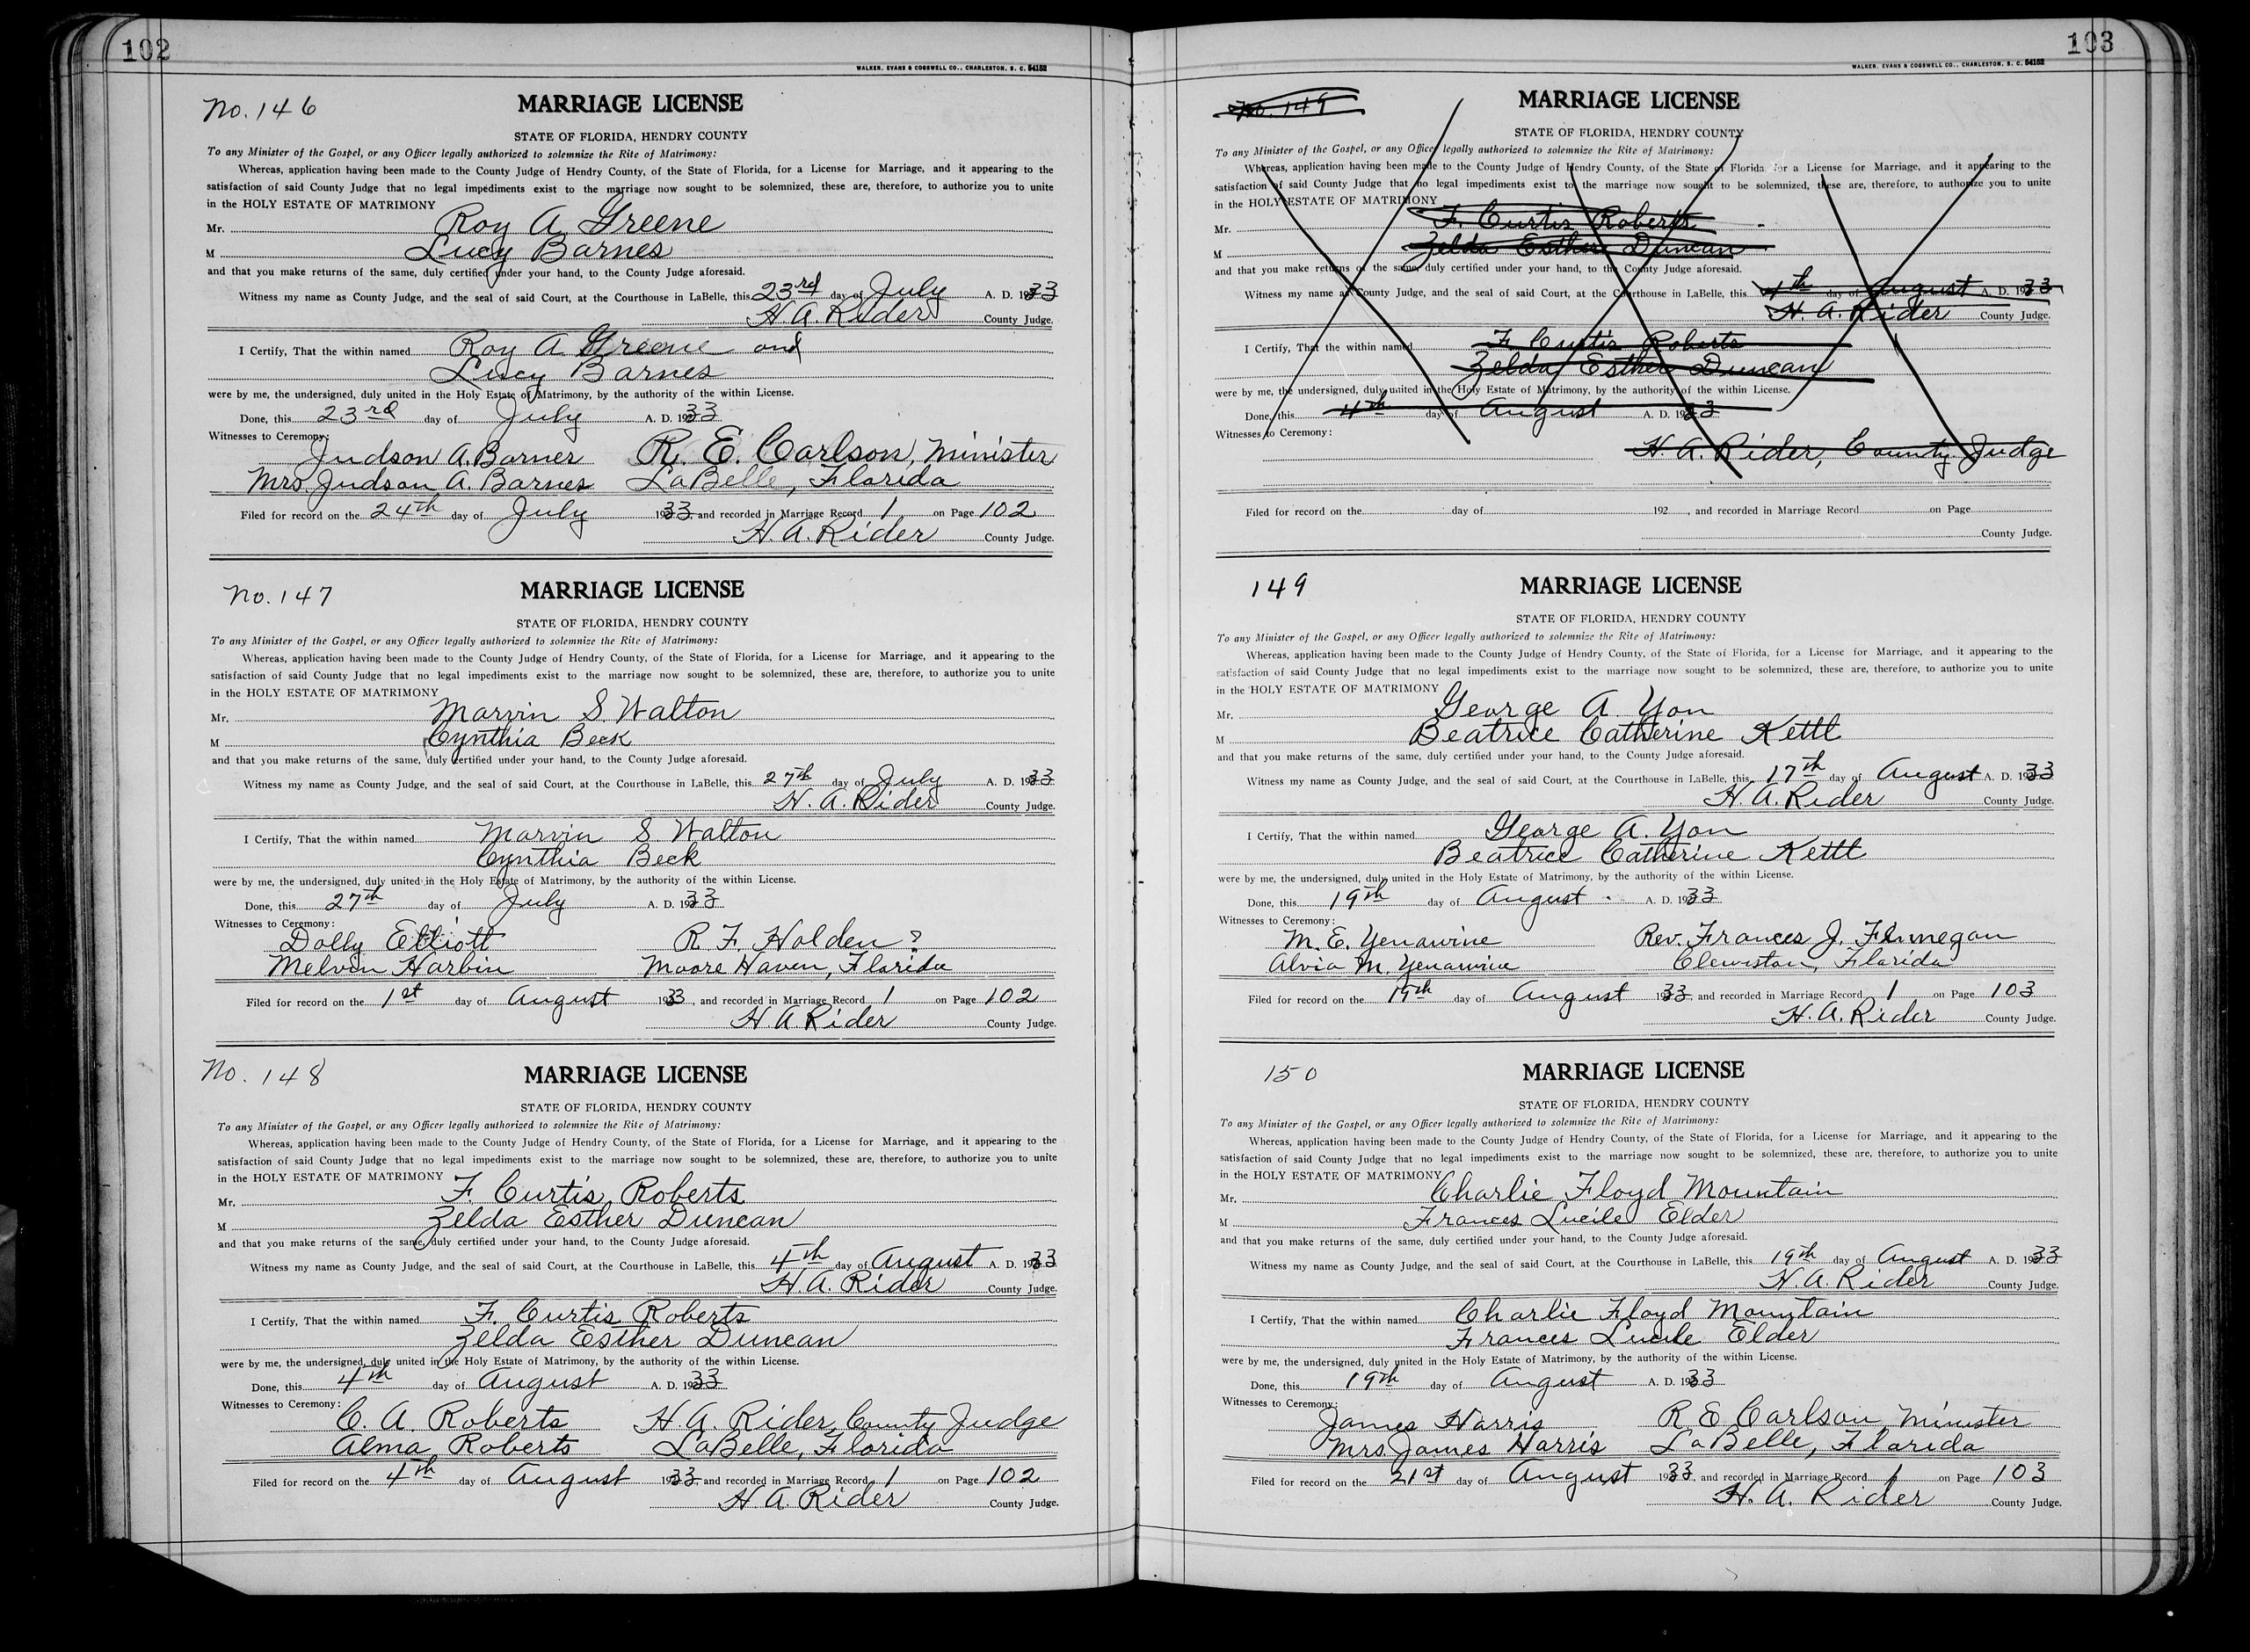 102
WALKER, EVANS & COGSWELL CO., CHARLESTON, S. C. 54152
No. 146
MARRIAGE LICENSE
STATE OF FLORIDA, HENDRY COUNTY
To any Minister of the Gospel, or any Officer legally authorized to solemnize the Rite of Matrimony:
Whereas, application having been made to the County Judge of Hendry County, of the State of Florida, for a License for Marriage, and it appearing to the
satisfaction of said County Judge that no legal impediments exist to the marriage now sought to be solemnized, these are, therefore, to authorize you to unite
in the HOLY ESTATE OF MATRIMONY
Mr. Roy A Greene
M Lucy Barnes
and that you make returns of the same, duly certified under your hand, to the County Judge aforesaid.
Witness my name as County Judge, and the seal of said Court, at the Courthouse in LaBelle, this 23rd day of July A. D. 1933
H. A. Rider County Judge.
I Certify, That the within named Roy A Greene and
Lucy Barnes
were by me, the undersigned, duly united in the Holy Estate of Matrimony, by the authority of the within License.
Done, this 23rd day of July A. D. 1933
Witnesses to Ceremony:
Judson A. Barner R. E. Carlson, Minister
Mrs. Judson A. Barnes LaBelle, Florida
Filed for record on the 24th day of July 1933 and recorded in Marriage Record 1 on Page 102
H. A. Rider County Judge.
No. 147
MARRIAGE LICENSE
STATE OF FLORIDA, HENDRY COUNTY
To any Minister of the Gospel, or any Officer legally authorized to solemnize the Rite of Matrimony:
Whereas, application having been made to the County Judge of Hendry County, of the State of Florida, for a License for Marriage, and it appearing to the
satisfaction of said County Judge that no legal impediments exist to the marriage now sought to be solemnized, these are, therefore, to authorize you to unite
in the HOLY ESTATE OF MATRIMONY
Mr. Marvin S. Walton
M Cynthia Beck
and that you make returns of the same, duly certified under your hand, to the County Judge aforesaid.
Witness my name as County Judge, and the seal of said Court, at the Courthouse in LaBelle, this 27th day of July A. D. 1933
H. A. Rider County Judge.
I Certify, That the within named Marvin S. Walton
Cynthia Beck
were by me, the undersigned, duly united in the Holy Estate of Matrimony, by the authority of the within License.
Done, this 27th day of July A. D. 1933
Witnesses to Ceremony:
Dolly Elliott R. F. Holden ?
Melvin Harbin Moore Haven, Florida
Filed for record on the 1st day of August 1933, and recorded in Marriage Record 1 on Page 102
H. A. Rider County Judge.
No. 148
MARRIAGE LICENSE
STATE OF FLORIDA, HENDRY COUNTY
To any Minister of the Gospel, or any Officer legally authorized to solemnize the Rite of Matrimony:
Whereas, application having been made to the County Judge of Hendry County, of the State of Florida, for a License for Marriage, and it appearing to the
satisfaction of said County Judge that no legal impediments exist to the marriage now sought to be solemnized, these are, therefore, to authorize you to unite
in the HOLY ESTATE OF MATRIMONY
Mr. F. Curtis Roberts
M Zelda Esther Duncan
and that you make returns of the same, duly certified under your hand, to the County Judge aforesaid.
Witness my name as County Judge, and the seal of said Court, at the Courthouse in LaBelle, this 4th day of August A. D. 1933
H. A. Rider County Judge.
I Certify, That the within named F. Curtis Roberts
Zelda Esther Duncan
were by me, the undersigned, duly united in the Holy Estate of Matrimony, by the authority of the within License.
Done, this 4th day of August A. D. 1933
Witnesses to Ceremony:
C. A. Roberts H. A. Rider, County Judge
Alma Roberts LaBelle, Florida
Filed for record on the 4th day of August 1933 and recorded in Marriage Record 1 on Page 102
H. A. Rider County Judge.
103
WALKER, EVANS & COGSWELL CO., CHARLESTON, S. C. 54152
No. 149
MARRIAGE LICENSE
STATE OF FLORIDA, HENDRY COUNTY
To any Minister of the Gospel, or any Officer legally authorized to solemnize the Rite of Matrimony:
Whereas, application having been made to the County Judge of Hendry County, of the State of Florida for a License for Marriage, and it appearing to the
satisfaction of said County Judge that no legal impediments exist to the marriage now sought to be solemnized, these are, therefore, to authorize you to unite
in the HOLY ESTATE OF MATRIMONY
Mr. F. Curtis Roberts
M Zelda Esther Duncan
and that you make returns of the same, duly certified under your hand, to the County Judge aforesaid.
Witness my name as County Judge, and the seal of said Court, at the Courthouse in LaBelle, this 4th day of August A. D. 1933
H. A. Rider County Judge.
I Certify, That the within named F. Curtis Roberts
Zelda Esther Duncan
were by me, the undersigned, duly united in the Holy Estate of Matrimony, by the authority of the within License.
Done, this 4th day of August A. D. 1933
Witnesses to Ceremony:
H. A. Rider, County Judge
Filed for record on the day of 192 , and recorded in Marriage Record on Page
County Judge.
149
MARRIAGE LICENSE
STATE OF FLORIDA, HENDRY COUNTY
To any Minister of the Gospel, or any Officer legally authorized to solemnize the Rite of Matrimony:
Whereas, application having been made to the County Judge of Hendry County, of the State of Florida, for a License for Marriage, and it appearing to the
satisfaction of said County Judge that no legal impediments exist to the marriage now sought to be solemnized, these are, therefore, to authorize you to unite
in the HOLY ESTATE OF MATRIMONY
Mr. George A Yon
M Beatrice Catherine Kettl
and that you make returns of the same, duly certified under your hand, to the County Judge aforesaid.
Witness my name as County Judge, and the seal of said Court, at the Courthouse in LaBelle, this 17th day of August A. D. 1933
H. A. Rider County Judge.
I Certify, That the within named George A. Yon
Beatrice Catherine Kettl
were by me, the undersigned, duly united in the Holy Estate of Matrimony, by the authority of the within License.
Done, this 19th day of August A. D. 1933
Witnesses to Ceremony:
M. E. Yenawine Rev. Frances J. Finnegan
Alvia M. Yenawine Clewiston, Florida
Filed for record on the 19th day of August 1933 and recorded in Marriage Record 1 on Page 103
H. A. Rider County Judge.
150
MARRIAGE LICENSE
STATE OF FLORIDA, HENDRY COUNTY
To any Minister of the Gospel, or any Officer legally authorized to solemnize the Rite of Matrimony:
Whereas, application having been made to the County Judge of Hendry County, of the State of Florida, for a License for Marriage, and it appearing to the
satisfaction of said County Judge that no legal impediments exist to the marriage now sought to be solemnized, these are, therefore, to authorize you to unite
in the HOLY ESTATE OF MATRIMONY
Mr. Charlie Floyd Mountain
M Frances Lucile Elder
and that you make returns of the same, duly certified under your hand, to the County Judge aforesaid.
Witness my name as County Judge, and the seal of said Court, at the Courthouse in LaBelle, this 19th day of August A. D. 1933
H. A. Rider County Judge.
I Certify, That the within named Charlie Floyd Mountain
Frances Lucile Elder
were by me, the undersigned, duly united in the Holy Estate of Matrimony, by the authority of the within License.
Done, this 19th day of August A. D. 1933
Witnesses to Ceremony:
James Harris R E Carlson, Minister
Mrs James Harris LaBelle, Florida
Filed for record on the 21st day of August 1933 and recorded in Marriage Record 1 on Page 103
H. A. Rider County Judge.